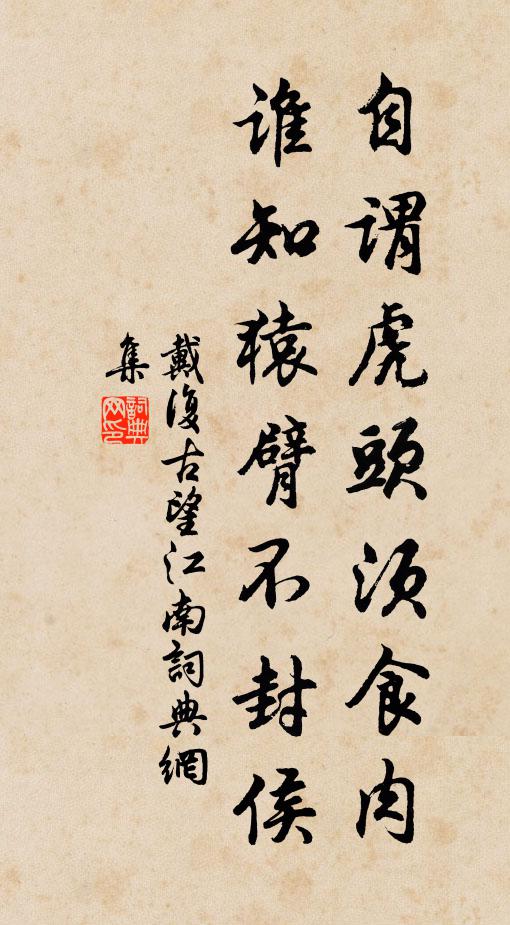 自謂虎頭須食肉
誰知猿臂不封侯
戴復古望江南詞典網
集
詞典網印